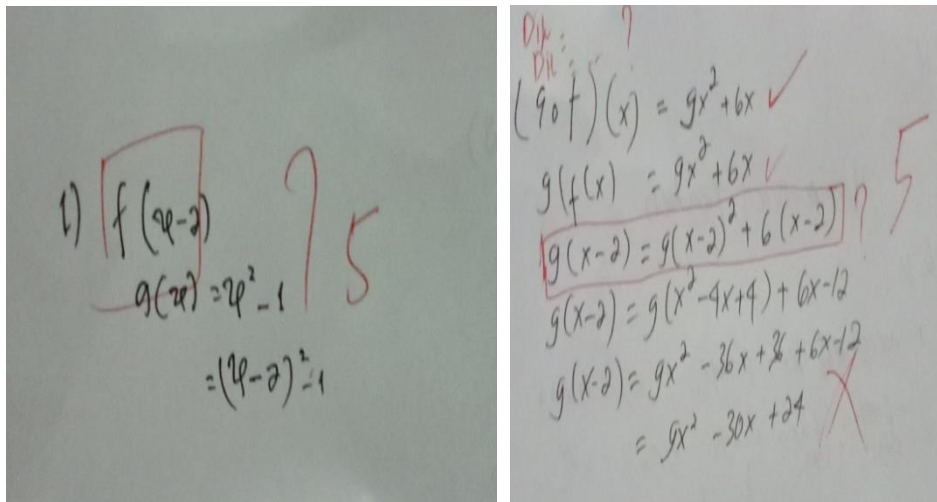 1) f(x-2)
g(x) = x² - 1
= (x-2)² - 1
?
5
Dik :
?
Dit :
(gof)(x) = 9x² + 6x ✓
g(f(x) = 9x² + 6x ✓
g(x-2) = 9(x-2)² + 6(x-2) ?
5
g(x-2) = 9(x² - 4x + 4) + 6x - 12
g(x-2) = 9x² - 36x + 36 + 6x - 12
= 9x² - 30x + 24